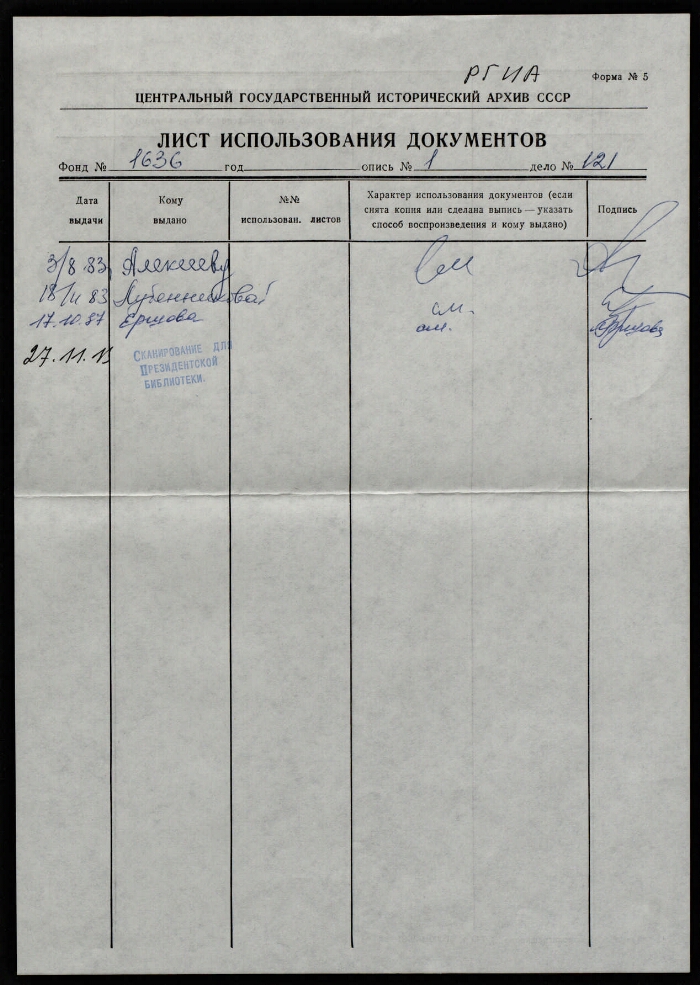 РГИА
Форма № 5
ЦЕНТРАЛЬНЫЙ ГОСУДАРСТВЕННЫЙ ИСТОРИЧЕСКИЙ АРХИВ СССР
ЛИСТ ИСПОЛЬЗОВАНИЯ ДОКУМЕНТОВ
Фонд № 1636 год опись № 1 дело № 121
Дата выдачи
Кому выдано
№№ использован. листов
Характер использования документов (если
снята копия или сделана выпись — указать
способ воспроизведения и кому выдано)
Подпись
3/8 83 Алексееву см
83 см.
17.10.87 Ершова см. Ершова
27.11.
Сканирование для
Президентской
библиотеки.